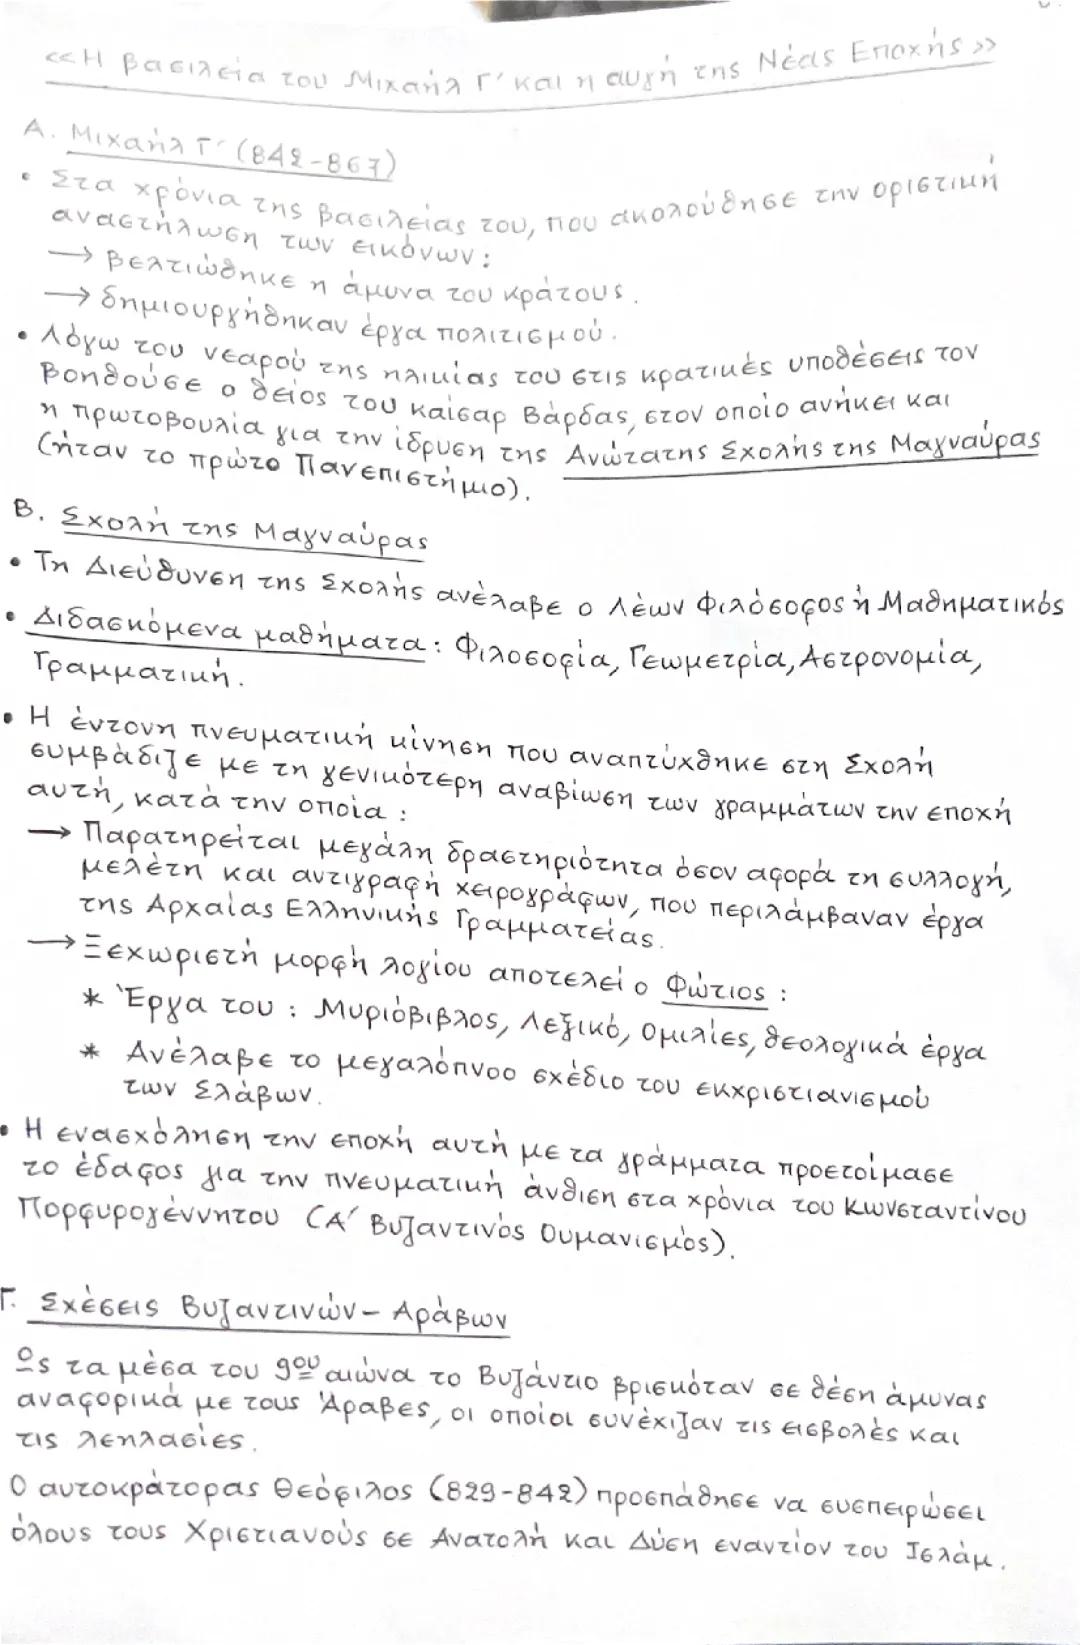 «Η βασιλεία του Μιχαήλ Γ' και η αυγή της Νέας Εποχής»
Α. Μιχαήλ Γ' (842-867)
• Στα χρόνια της βασιλείας του, που ακολούθησε την οριστική
αναστήλωση των εικόνων:
→ βελτιώθηκε η άμυνα του κράτους.
→ δημιουργήθηκαν έργα πολιτισμού.
• Λόγω του νεαρού της ηλικίας του στις κρατικές υποθέσεις τον
βοηθούσε ο θείος του καίσαρ Βάρδας, στον οποίο ανήκει και
η πρωτοβουλία για την ίδρυση της Ανώτατης Σχολής της Μαγναύρας
(ήταν το πρώτο Πανεπιστήμιο).
Β. Σχολή της Μαγναύρας
• Τη Διεύθυνση της Σχολής ανέλαβε ο Λέων Φιλόσοφος ή Μαθηματικός
• Διδασκόμενα μαθήματα: Φιλοσοφία, Γεωμετρία, Αστρονομία,
Γραμματική.
• Η έντονη πνευματική κίνηση που αναπτύχθηκε στη Σχολή
συμβάδιζε με τη γενικότερη αναβίωση των γραμμάτων την εποχή
αυτή, κατά την οποία:
→ Παρατηρείται μεγάλη δραστηριότητα όσον αφορά τη συλλογή,
μελέτη και αντιγραφή χειρογράφων, που περιλάμβαναν έργα
της Αρχαίας Ελληνικής Γραμματείας.
→ Ξεχωριστή μορφή λογίου αποτελεί ο Φώτιος:
* Έργα του: Μυριόβιβλος, Λεξικό, Ομιλίες, θεολογικά έργα
* Ανέλαβε το μεγαλόπνοο σχέδιο του εκχριστιανισμού
των Σλάβων.
• Η ενασχόληση την εποχή αυτή με τα γράμματα προετοίμασε
το έδαφος για την πνευματική άνθιση στα χρόνια του Κωνσταντίνου
Πορφυρογέννητου (Α' Βυζαντινός Ουμανισμός).
Γ. Σχέσεις Βυζαντινών - Αράβων
Ως τα μέσα του 9ου αιώνα το Βυζάντιο βρισκόταν σε θέση άμυνας
αναφορικά με τους Άραβες, οι οποίοι συνέχιζαν τις εισβολές και
τις λεηλασίες.
Ο αυτοκράτορας Θεόφιλος (829-842) προσπάθησε να συσπειρώσει
όλους τους Χριστιανούς σε Ανατολή και Δύση εναντίον του Ισλάμ.